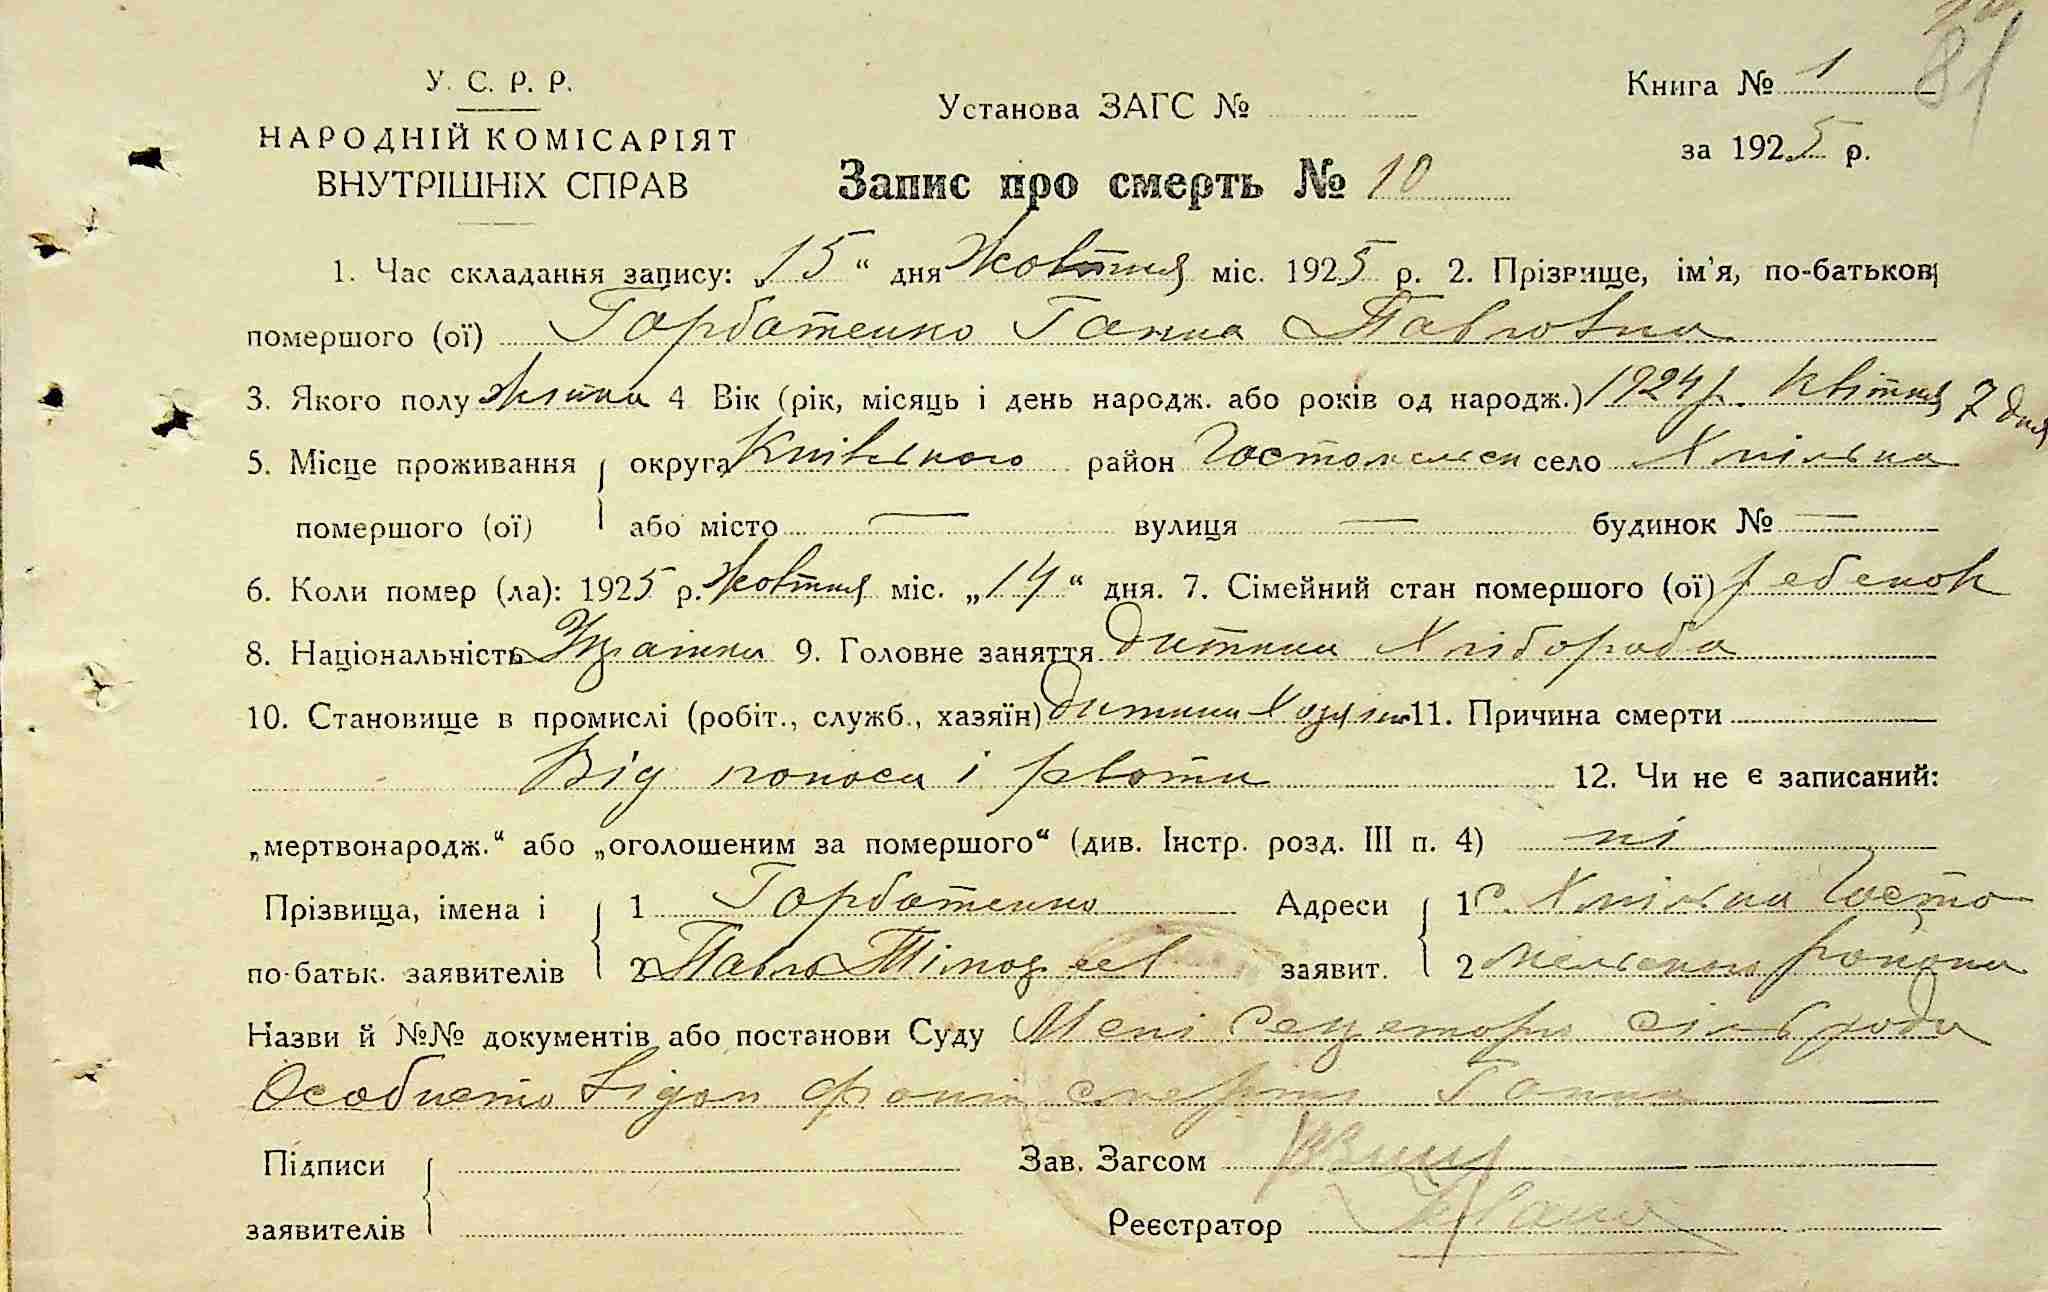 81
У. С. Р. Р.
НАРОДНІЙ КОМІСАРІЯТ
ВНУТРІШНІХ СПРАВ
Установа ЗАГС №
Книга № 1
за 1925 р.
Запис про смерть № 10
1. Час складання запису: „15“ дня Жовтня міс. 1925 р. 2. Прізвище, ім'я, по-батькові
помершого (ої) Горбатенко Ганна Павловна
3. Якого полу жінка 4 Вік (рік, місяць і день народж. або років од народж.) 1924 р. Квітня 7 дня
5. Місце проживання округа Київського район Гостомельськ село Хмільна
помершого (ої) або місто — вулиця — будинок № —
6. Коли помер (ла): 1925 р. Жовтня міс. „14“ дня. 7. Сімейний стан помершого (ої) ребенок
8. Національність Украінка 9. Головне заняття дитина Хлібороба
10. Становище в промислі (робіт., служб., хазяїн) дитина 11. Причина смерти
Від поноса і рвоти 12. Чи не є записаний:
„мертвонародж.“ або „оголошеним за помершого“ (див. Інстр. розд. III п. 4) ні
Прізвища, імена і 1 Горбатенко Адреси 1 с. Хмільна Госто
по-батьк. заявителів 2 Павло Тімофеев заявит. 2 мельского района
Назви й №№ документів або постанови Суду Мені Секретарю сільради
Особисто відом факт смерти Ганни
Підписи Зав. Загсом
заявителів Реєстратор